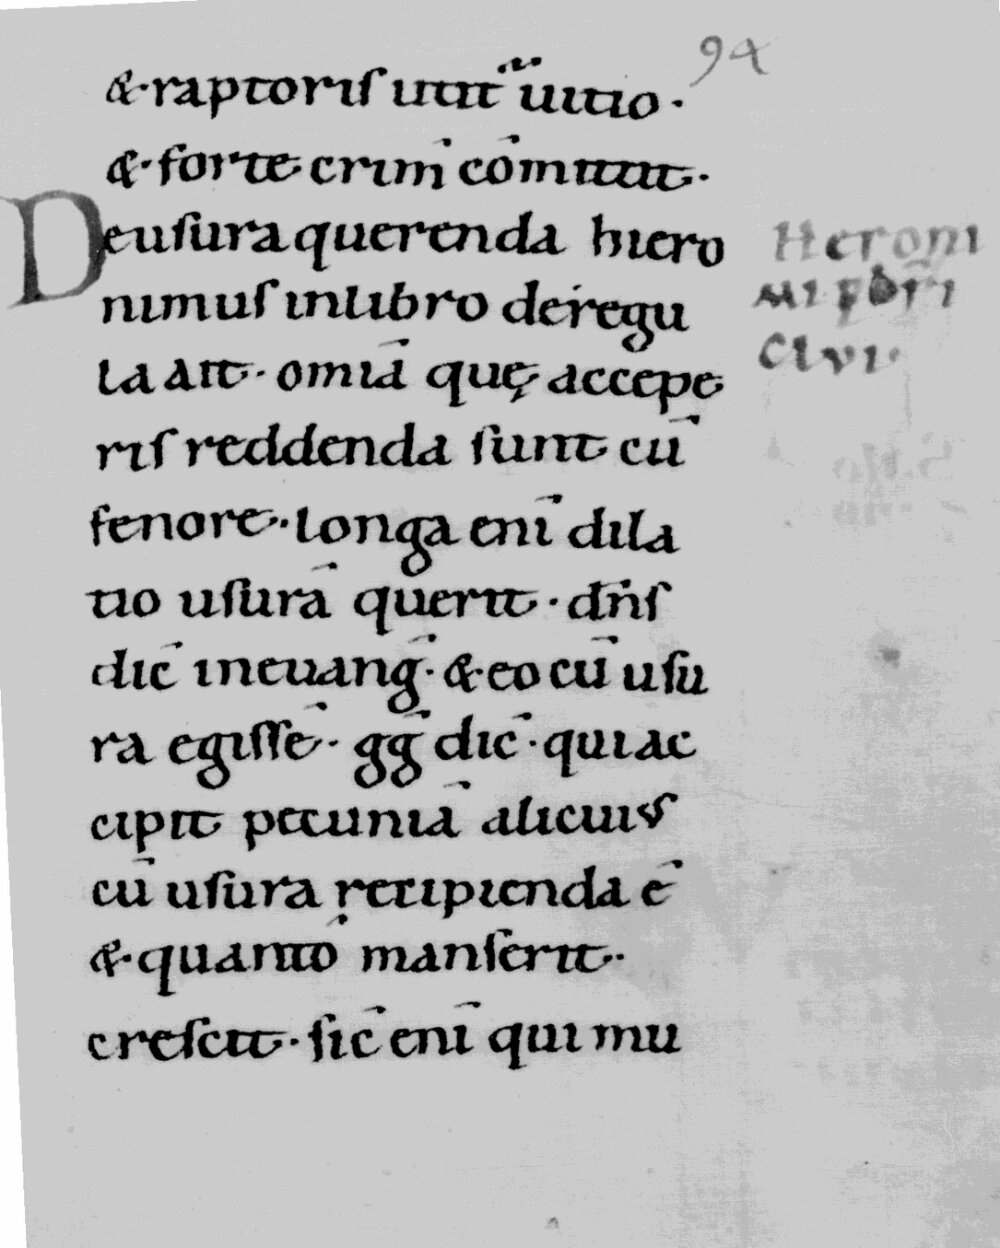 94
&·raptoris utit̄ uitio·
&·forte crim̄ cōmittit·
De usura querenda hiero
nimus inlibro deregu
la ait· omīa quę accepe
ris reddenda sunt cū
fenore· longa enī dila
tio usurā querit· dn̄s
dic̄ ineuanḡ· & eo cū usu
ra egissē· gḡ dic̄· qui ac
cipit pecuniā alicuius
cū usura recipienda ē
&·quantō manserit·
crescit· sic̄ enī qui mu
Heroni
mi
clvi·